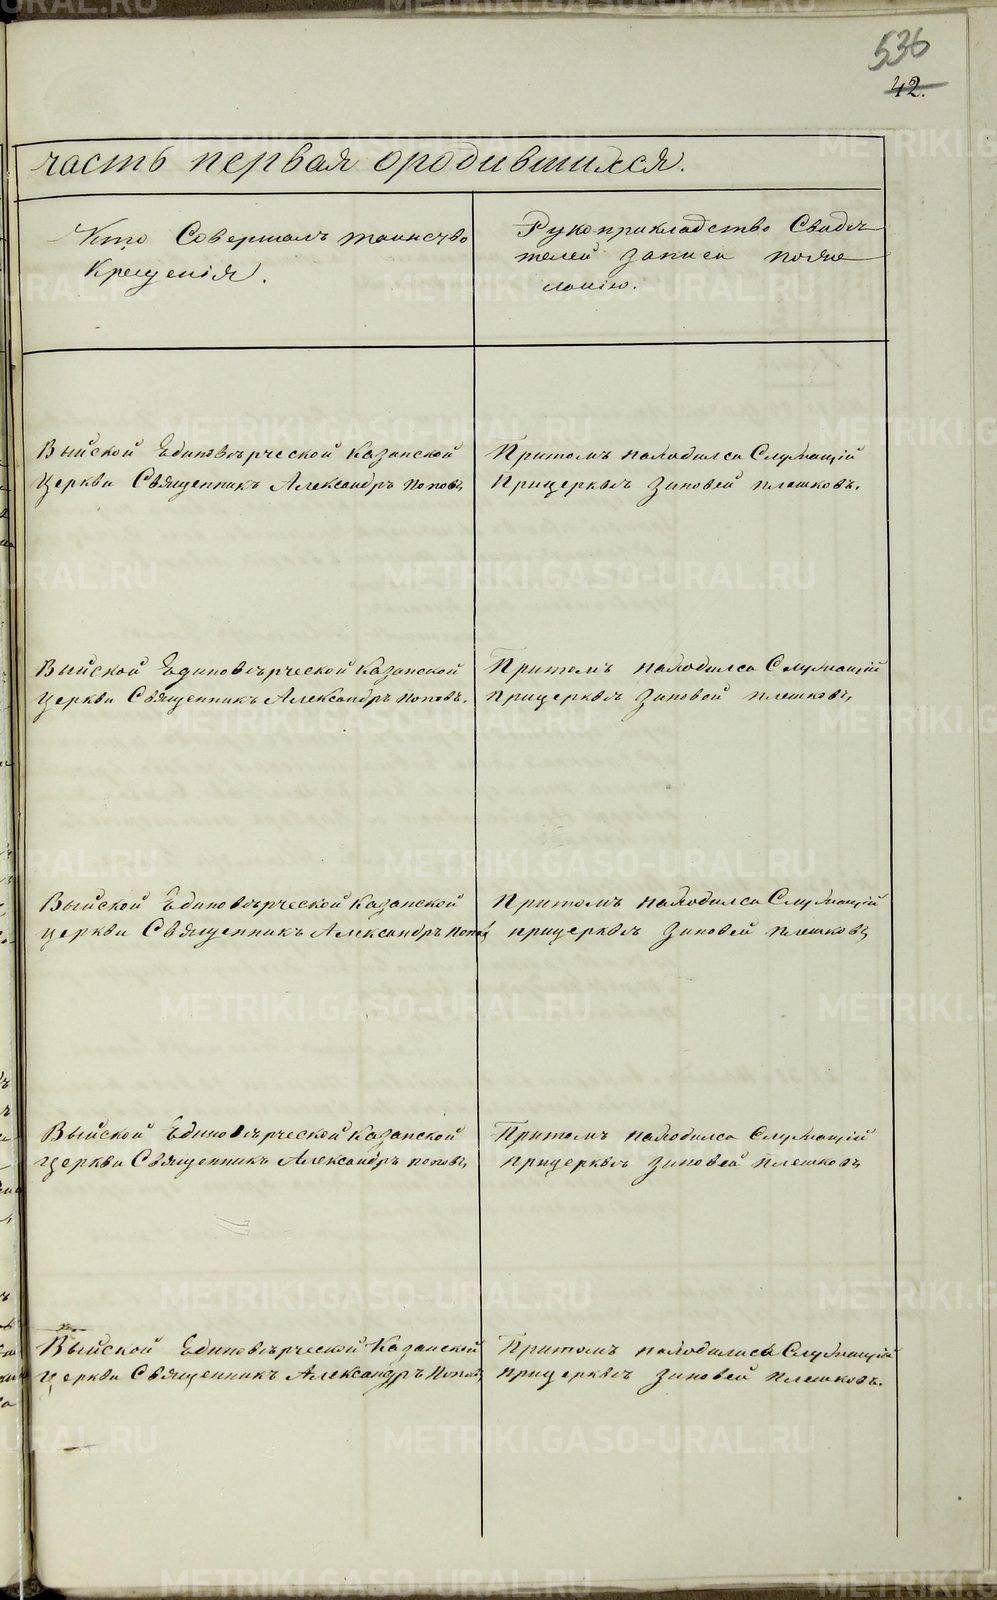 536
42.
часть первая ородившихся.
Кто Совершалъ таинство
Крещенія.
Рукоприкладство Свидѣ
телей записи пожѣ
ланію.
Выйской Единовѣрческой Казанской
Церкви Священникъ Александръ Поповъ,
Притомъ находился Служащій
Прицерквѣ Зиновей Плешковъ.
Выйской Единовѣрческой Казанской
Церкви Священникъ Александръ Поповъ.
Притомъ находился Служащій
прицерквѣ Зиновей Плешковъ,
Выйской Единовѣрческой Казанской
церкви Священникъ Александръ Поповъ
Притомъ находился Служащій
прицерквѣ Зиновей Плешковъ
Выйской Единовѣрческой Казанской
церкви Священникъ Александръ Поповъ,
Притомъ находился Служащій
прицерквѣ Зиновей Плешковъ
Выйской Единовѣрческой Казанской
Церкви Священникъ Александръ Поповъ
Притомъ находились Служащій
прицерквѣ Зиновей Плешковъ.
METRIKI.GASO-URAL.RU